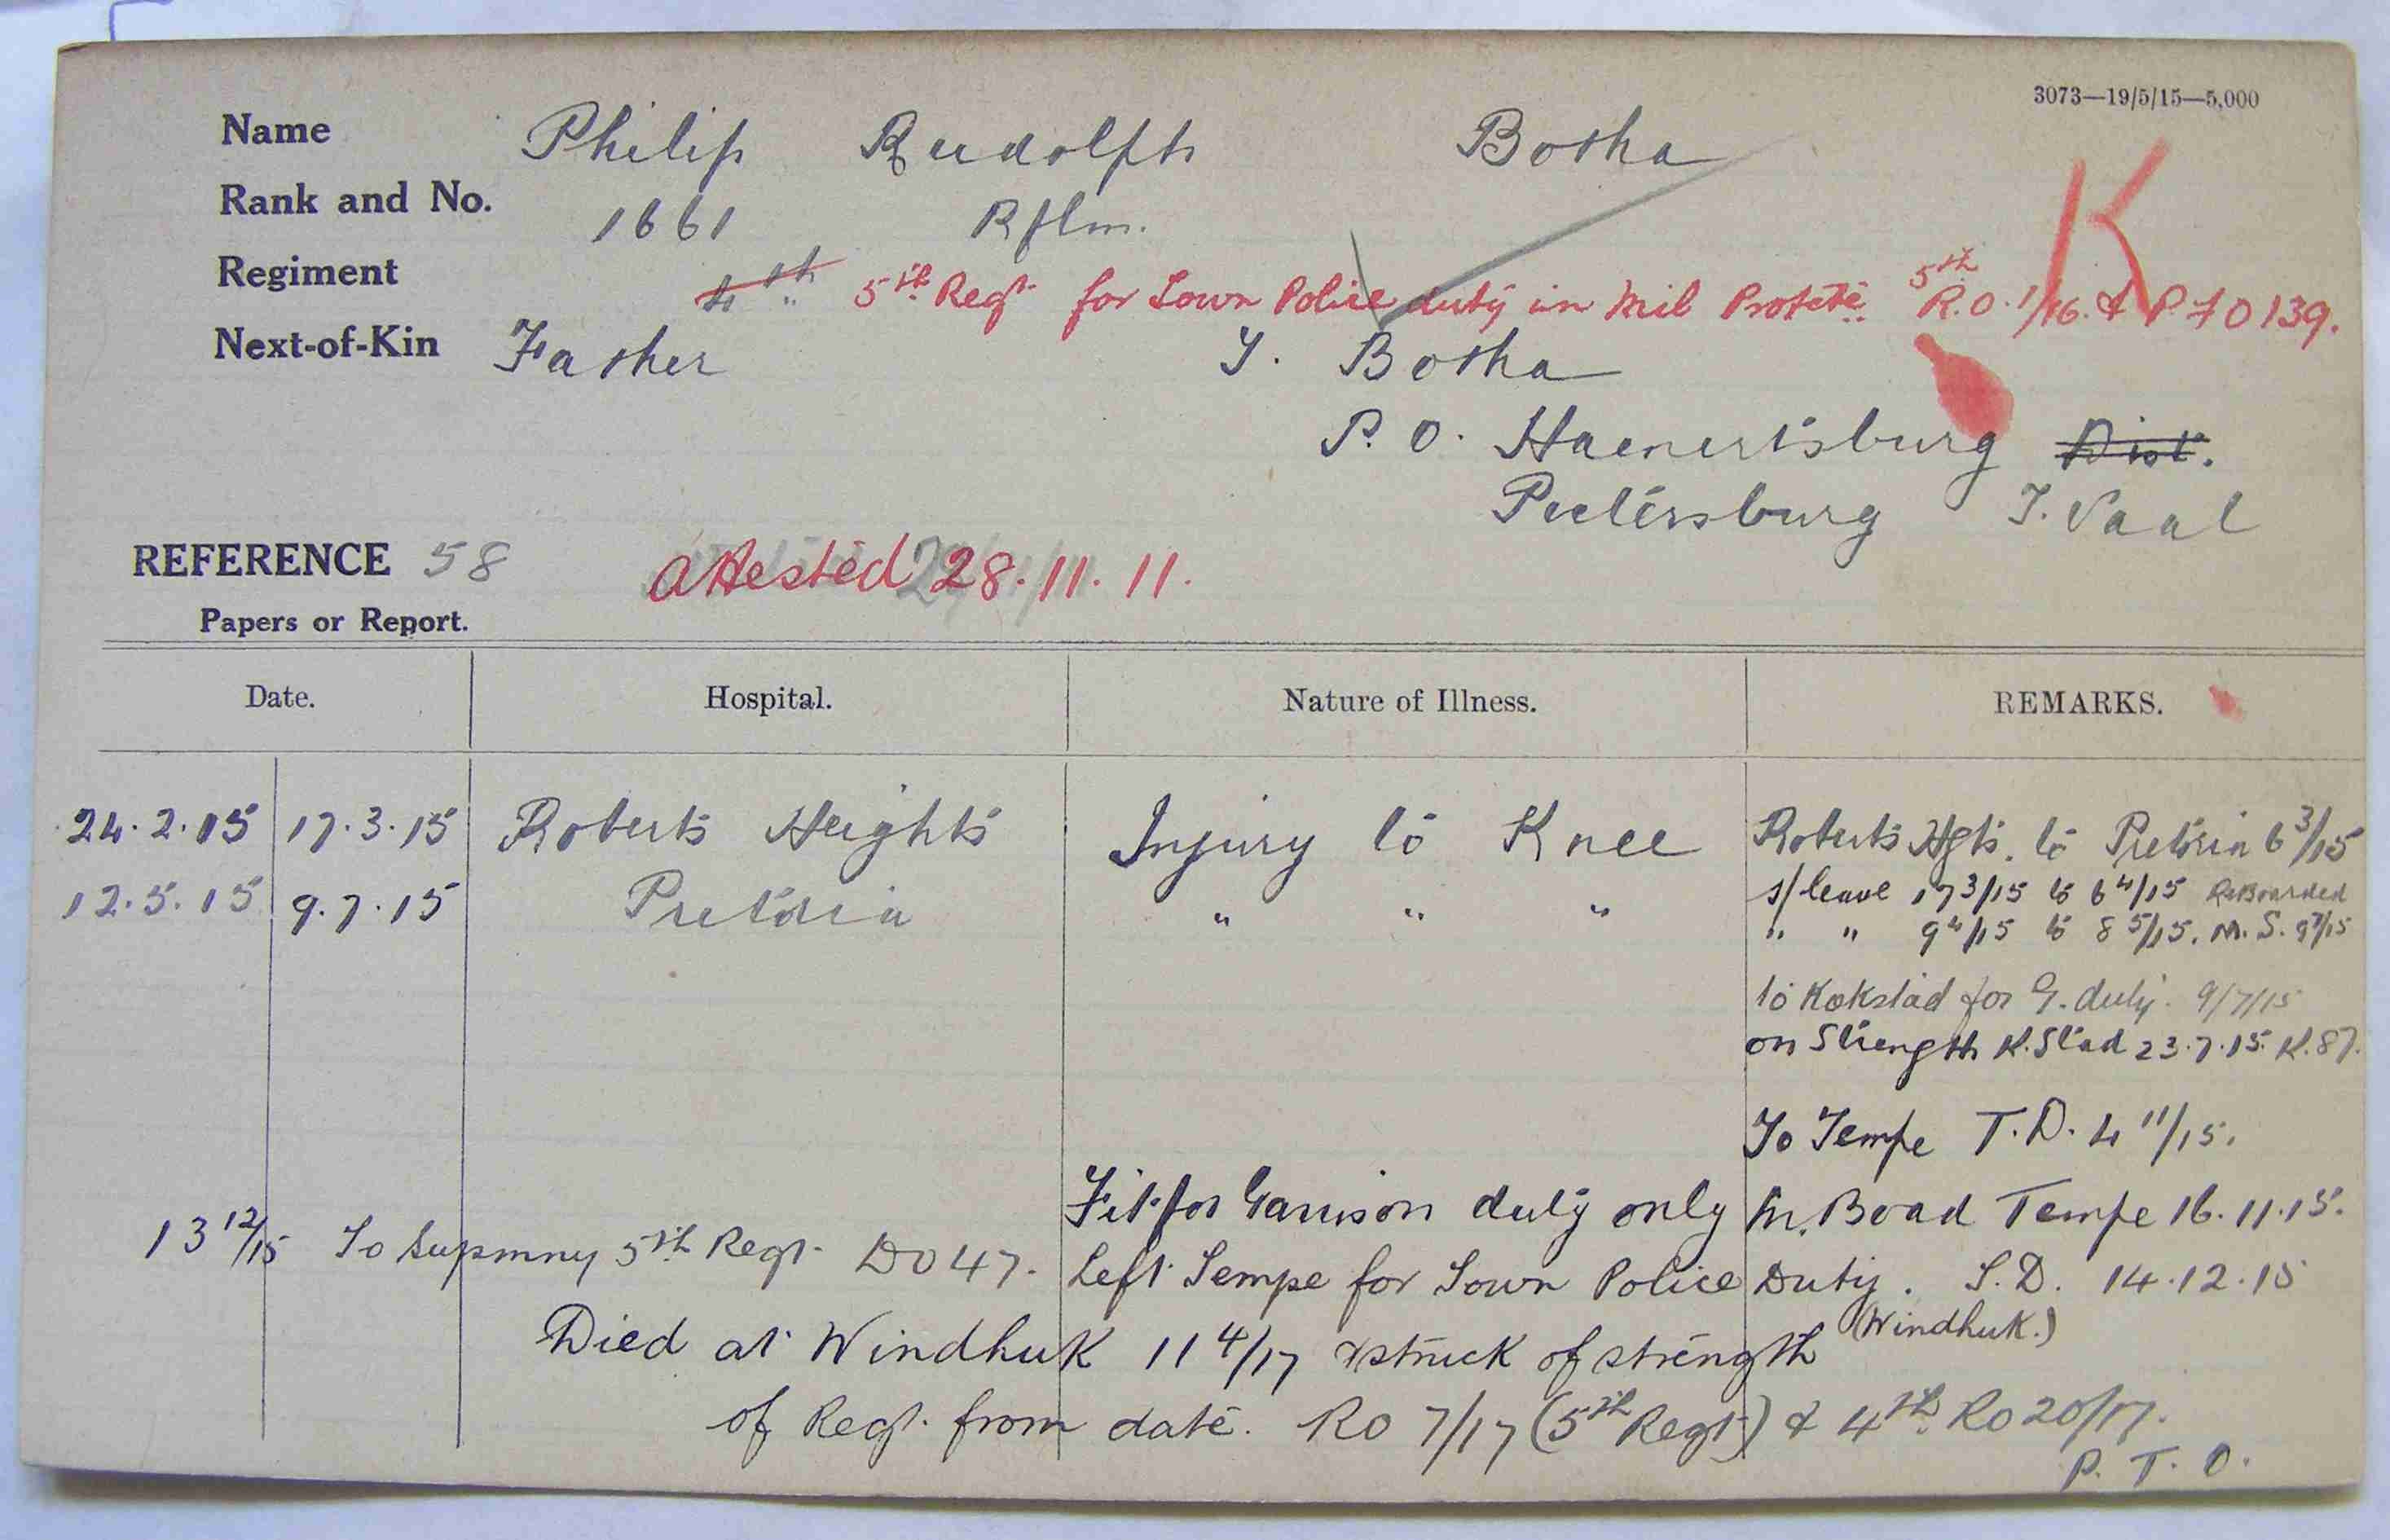 3073—19/5/15—5,000
Name Philip Rudolph Botha
K
Rank and No. 1661 Rflm.
Regiment 4th 5th Regt for Town Police duty in Mil Protete. 5th R.O. 1/16. & P 70139.
Next-of-Kin Father T. Botha
P. O. Haenertsburg Dist.
Pietersburg T. Vaal
REFERENCE 58 Attested 28.11.11.
Papers or Report.
Date. Hospital. Nature of Illness. REMARKS.
24.2.15 17.3.15 Roberts Heights Injury to Knee Roberts Hgts. to Pretoria 6 3/15
12.5.15 9.7.15 Pretoria " " " s/leave 17 3/15 to 6 4/15 ReBoarded
" " 9 4/15 to 8 5/15. M. S. 9 7/15
to Kokstad for G. duty. 9/7/15
on Strength K. Stad 23.7.15. K.87.
To Tempe T.D. 4 11/15.
Fit for Garrison duty only M. Board Tempe 16.11.15.
13 12/15 To Supmny 5th Regt. DO 47. Left Tempe for Town Police Duty. T.D. 14.12.15
(Windhuk.)
Died at Windhuk 11 4/17 & struck of strength
of Regt. from date. RO 7/17 (5th Regt) & 4th RO 20/17.
P. T. O.